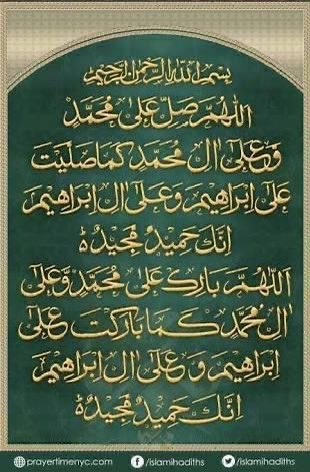 بسم الله الرحمن الرحيم
اللهم صل على محمد
وعلى ال محمد كما صليت
على ابراهيم وعلى ال ابراهيم
انك حميد مجيد
اللهم بارك على محمد وعلى
ال محمد كما باركت على
ابراهيم وعلى ال ابراهيم
انك حميد مجيد
prayertimenyc.com /islamihadiths /islamihadiths